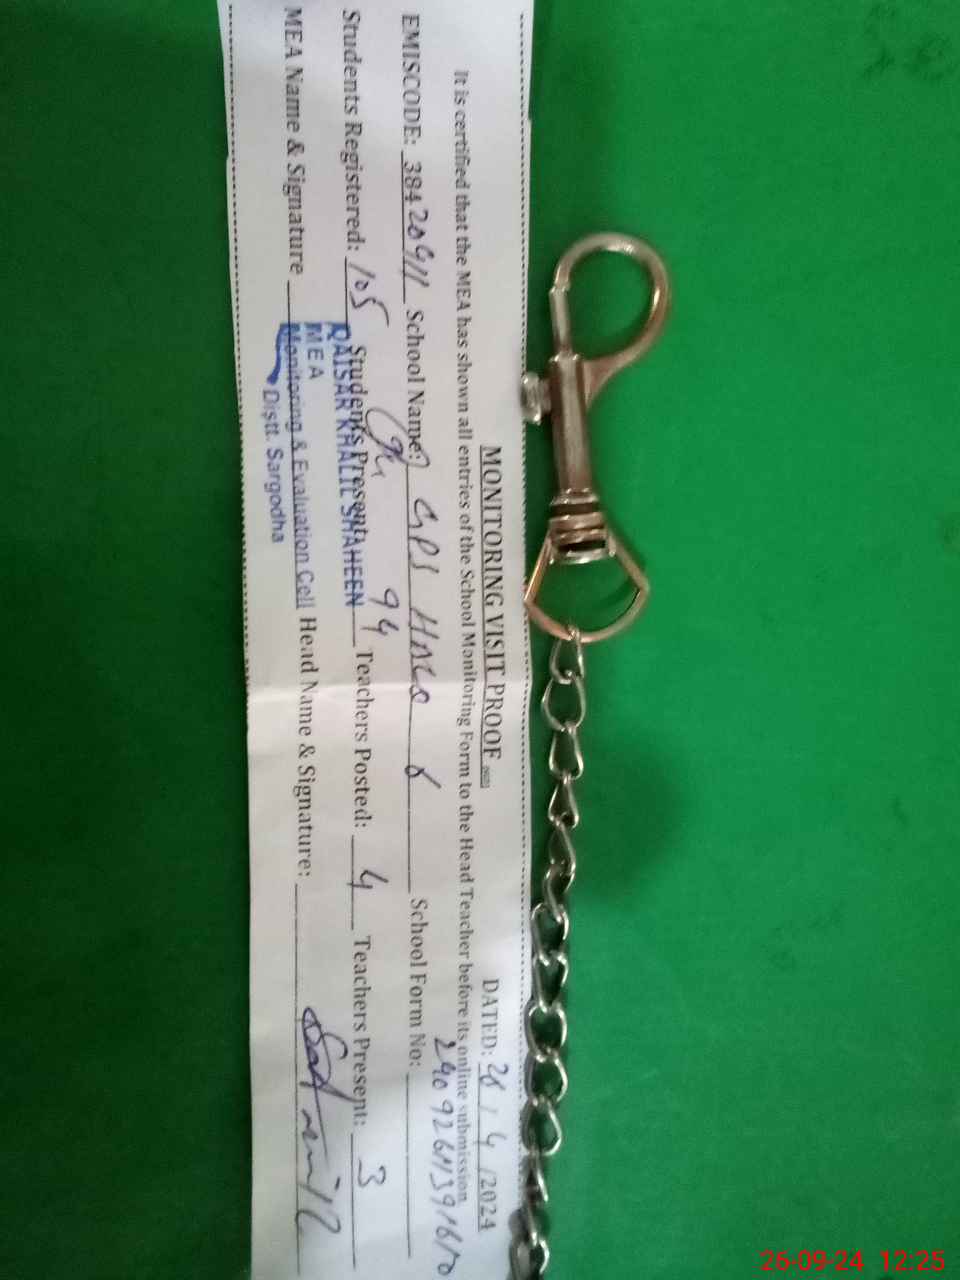 MONITORING VISIT PROOF
DATED: /4/2024
It is certified that the MEA has shown all entries of the School Monitoring Form to the Head Teacher before its online submission
EMISCODE: 384 School Name: GPS School Form No:
Students Registered: 105 Students Present: 94 Teachers Posted: 4 Teachers Present: 3
MEA Name & Signature Head Name & Signature:
QAISAR KHALIL SHAHEEN
MEA
Monitoring & Evaluation Cell
Distt. Sargodha
26-09-24 12:25